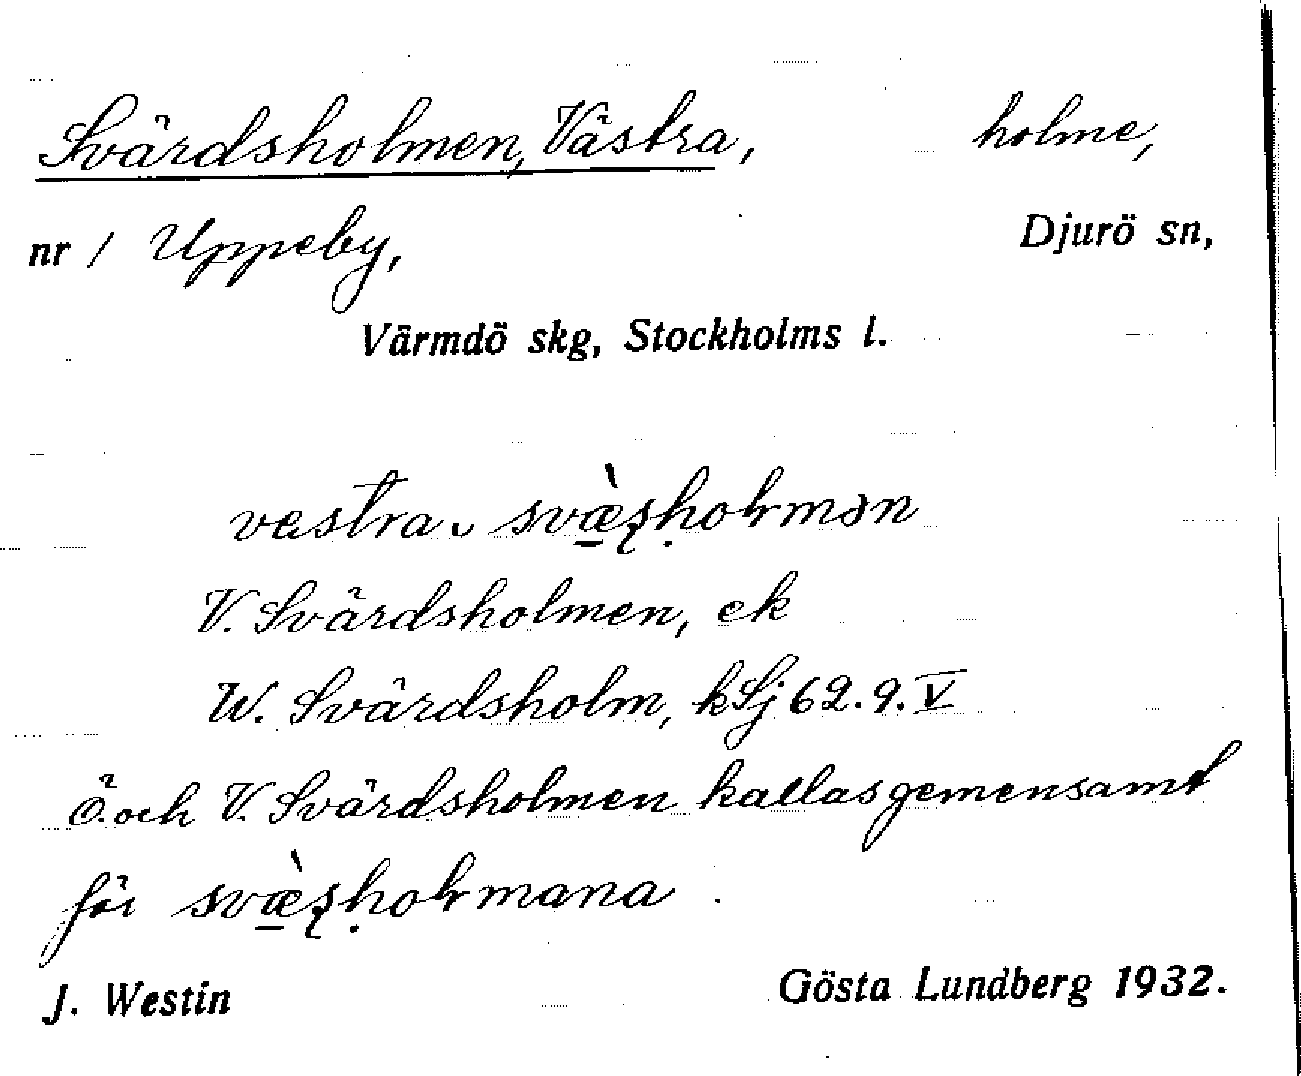 Svärdsholmen, Västra, holme,
nr 1 Uppeby, Djurö sn,
Värmdö skg, Stockholms l.
vestra svæ̀ʂḥoɽmən
V. Svärdsholmen, ek
W. Svärdsholm, kSj 62.9.V
Ö. och V. Svärdsholmen kallas gemensamt
för svæ̀ʂḥoɽmana
J. Westin Gösta Lundberg 1932.